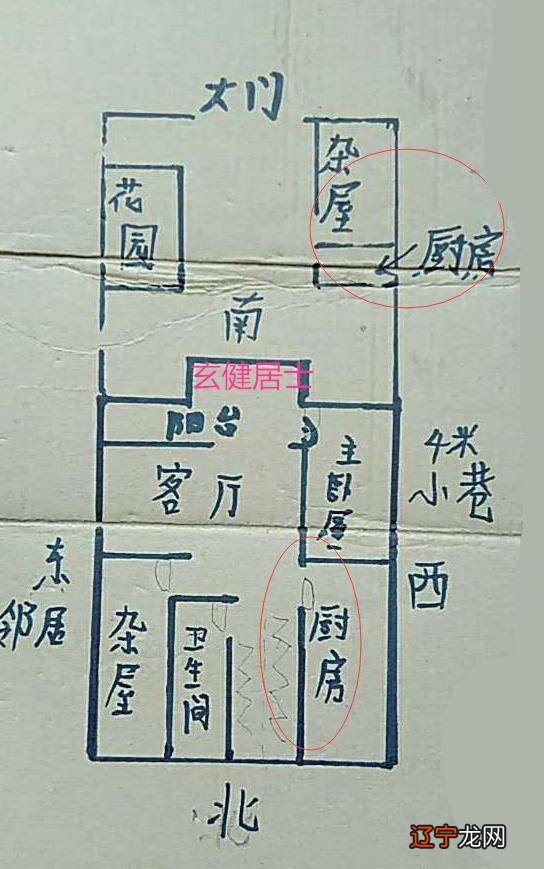 大门
杂屋
花园
厨房
南
玄健居士
阳台
主卧屋
4米
小巷
客厅
东
邻居
西
杂屋
卫生间
厨房
北
辽宁龙网